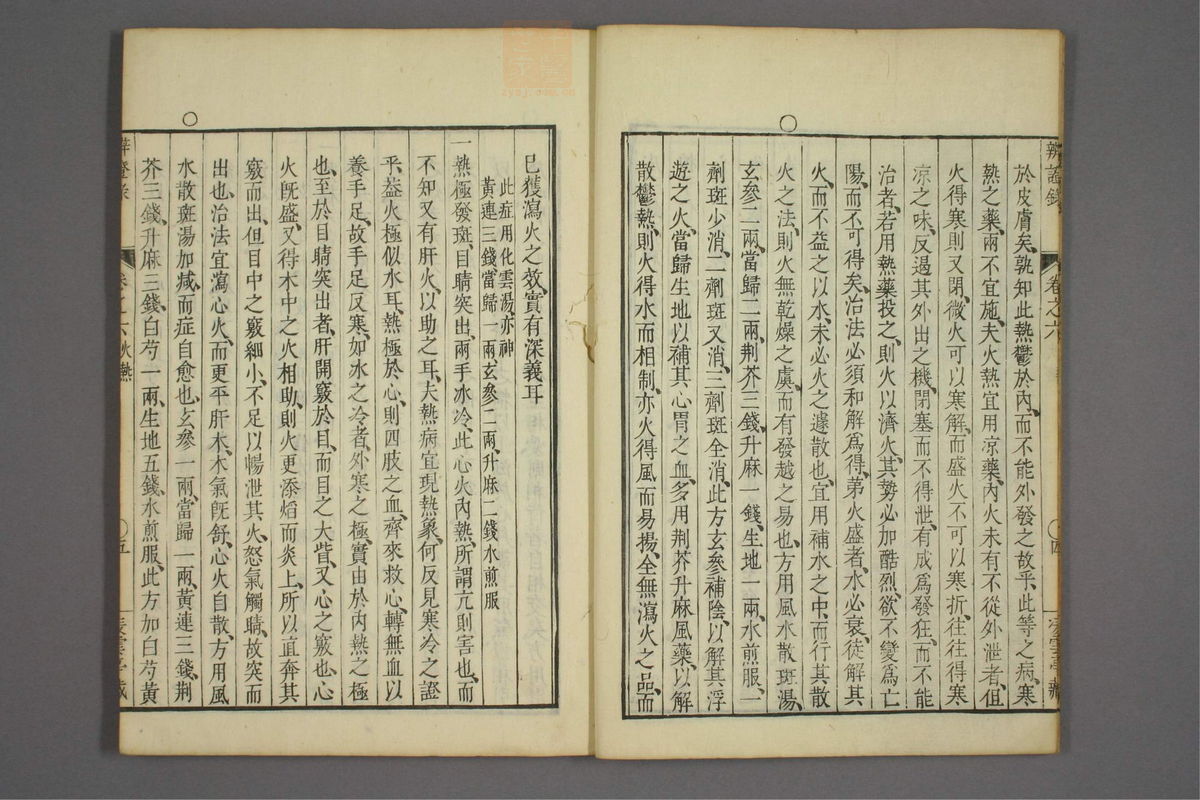 辨證錄
卷之六
於皮膚矣、孰知此熱鬱於內、而不能外發之故乎、此等之病、寒
熱之藥、兩不宜施、夫火熱宜用凉藥、內火未有不從外泄者、但
火得寒則又閉、微火可以寒解、而盛火不可以寒折、往往得寒
凉之味、反遏其外出之機、閉塞而不得泄、有成爲發狂、而不能
治者、若用熱藥投之、則火以濟火、其勢必加酷烈、欲不變爲亡
陽、而不可得矣、治法必須和解爲得、第火盛者、水必衰、徒解其
火、而不益之以水、未必火之遽散也、宜用補水之中、而行其散
火之法、則火無乾燥之虞、而有發越之易也、方用風水散斑湯、
玄參二兩、當歸二兩、荆芥三錢、升麻一錢、生地一兩、水煎服、一
劑斑少消、二劑斑又消、三劑斑全消、此方玄參補陰、以解其浮
遊之火、當歸生地以補其心胃之血、多用荆芥升麻風藥、以解
散鬱熱、則火得水而相制、亦火得風而易揚、全無瀉火之品、而
已獲瀉火之效、實有深義耳
此症用化雲湯、亦神
黃連三錢當歸一兩玄參二兩升麻二錢水煎服
一熱極發斑、目睛突出、兩手冰冷、此心火內熱、所謂亢則害也、而
不知又有肝火、以助之耳、夫熱病宜現熱象、何反見寒冷之證
乎、葢火極似水耳、熱極於心、則四肢之血、齊來救心、轉無血以
養手足、故手足反寒、如冰之冷者、外寒之極、實由於內熱之極
也、至於目睛突出者、肝開竅於目、而目之大眥、又心之竅也、心
火旣盛、又得木中之火相助、則火更添熖而炎上、所以直奔其
竅而出、但目中之竅細小、不足以暢泄其火、怒氣觸睛、故突而
出也、治法宜瀉心火、而更平肝木、木氣旣舒、心火自散、方用風
水散斑湯加減、而症自愈也、玄參一兩、當歸一兩、黃連三錢、荆
芥三錢、升麻三錢、白芍一兩、生地五錢、水煎服、此方加白芍黃
卷之六火熱
五
zysj.com.cn